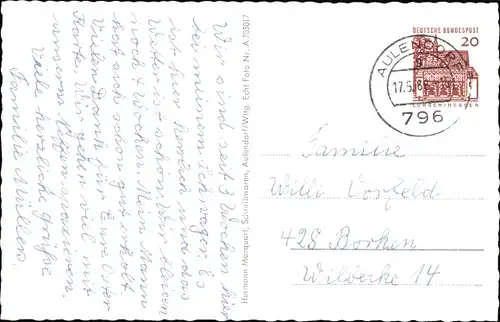 Wir sind seit 3 Wochen hier
bei meinem Schwager. Es
ist hier herrlich und das
Wetter ist schön. Wir bleiben
noch 4 Wochen. Mein Mann
hat sich schon gut erholt.
Vielen Dank für Eure Oster
Karte. Wir gehen viel mit
unserm Neffen spazieren.
Viele herzliche Grüße
Familie Müller
Hermann Marquart, Schreibwaren, Aulendorf/Wttg. Echt Foto Nr. A 703017
DEUTSCHE BUNDESPOST
20
LORSCH/HESSEN
AULENDORF
17.5.66
796
Familie
Willi
428 Borken
Wilbecke 14